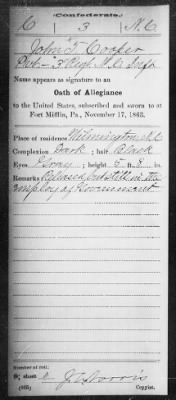 (Confederate.)
C 3 N.C.
John T. Cooper
Pvt - 3 Regt N.C. Inft
Name appears as signature to an
Oath of Allegiance
to the United States, subscribed and sworn to at
Fort Mifflin, Pa., November 17, 1863.
Place of residence Wilmington N.C.
Complexion Dark ; hair Black
Eyes Gray ; height 5 ft. 8 in.
Remarks Released, but still in the
employ of Government
Number of roll:
sheet
Copyist.